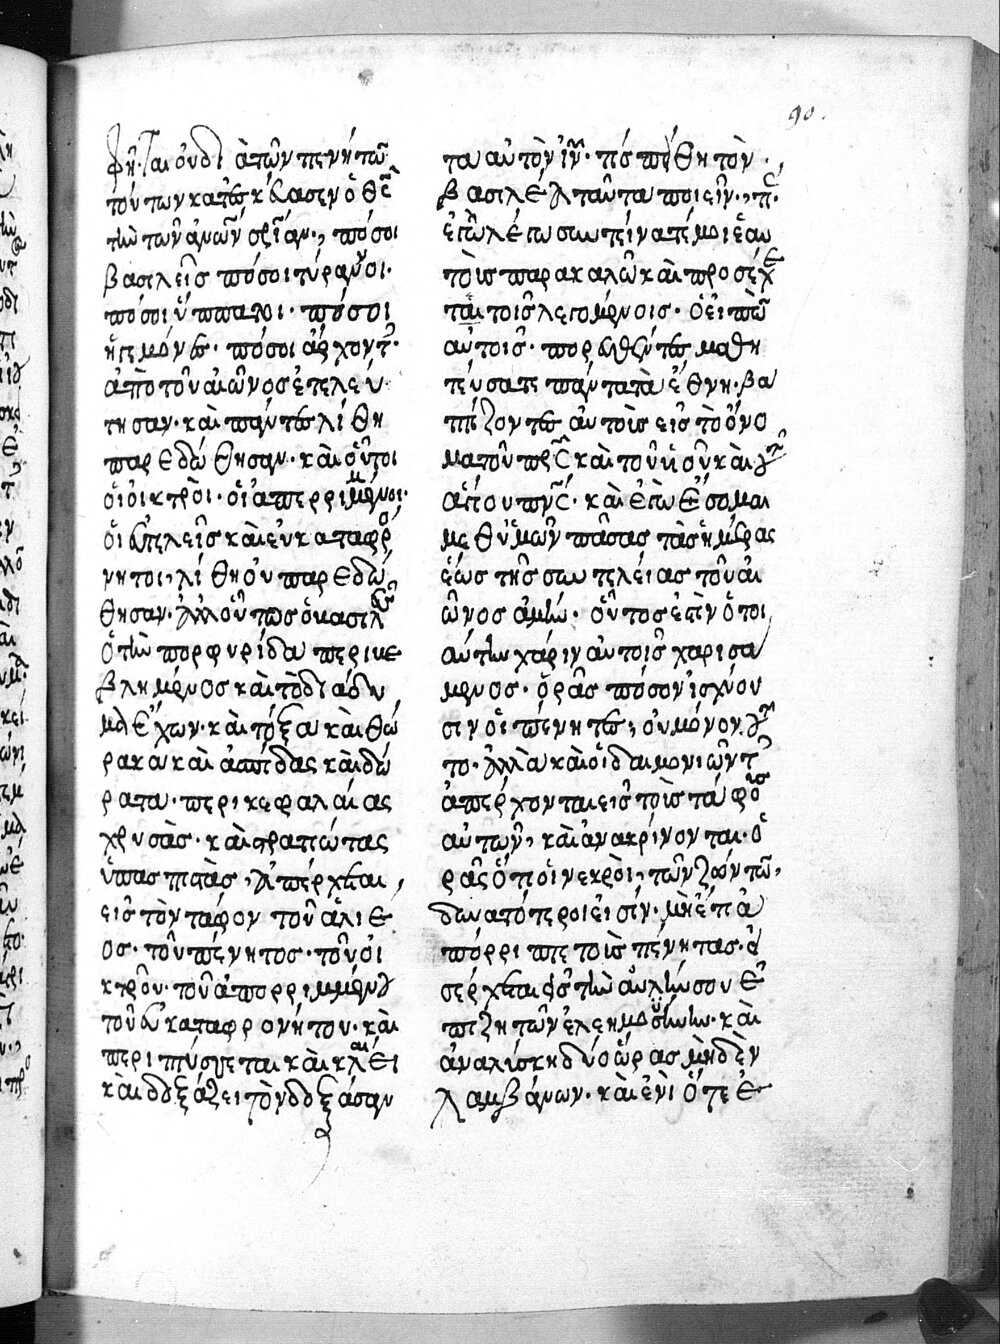 90.
φῆται οὐδὲ ἀπὸ τῶν πενήτων
τούτων κατεσκεύασεν ὁ θεὸς
τὴν τῶν ἀνων σρίαν, πόσοι
βασιλεῖς πόσοι τύραννοι.
πόσοι ὕπατοι. πόσοι
ἡγεμόνες. πόσοι ἄρχοντες.
ἀπὸ τοῦ αἰῶνος ἐτελεύ
τησαν. καὶ πάντες λήθη
παρεδώθησαν. καὶ οὗτοι
οἱ οἰκτροὶ. οἱ ἀπερριμμένοι.
οἱ εὐτελεῖς καὶ εὐκαταφρό
νητοι. λήθη οὐ παρεδώ
θησαν. ἀλλ' οὕτως ὁ βασιλεὺς
ὁ τὴν πορφυρίδα περιβε
βλημένος καὶ τὸ διάδη
μα ἔχων. καὶ τόξα καὶ θώ
ρακα καὶ ἀσπίδας καὶ δώ
ρατα. περικεφαλαίας
χρυσάς. καὶ στρατιώτας
ὑπασπιστάς. ἀπέρχεται,
εἰς τὸν τάφον τοῦ ἁλιέ
ος. τοῦ πένητος. τοῦ οἰ
κτροῦ. τοῦ ἀπορριμμένου
τοῦ εὐκαταφρονήτου. καὶ
περιπτύσσεται καὶ κλαίει
καὶ δοξάζει τὸν δοξάσαν
τα αὐτὸν ιν. τίς πείθη τὸν
βασιλέα ταῦτα ποιεῖν., τίς.
ἐγὼ λέγω συγγίνεται μοι ἐὰν
τοῖς παρακαλῶ καὶ προσέχε
ται τοῖς λεγομένοις. ὁ εἰπὼν
αὐτοῖς. πορευθέντες μαθη
τεύσατε πάντα τὰ ἔθνη. βα
πτίζοντες αὐτοὺς εἰς τὸ ὄνο
μα τοῦ πρς καὶ τοῦ υἱοῦ καὶ τοῦ
ἁγίου πνς. καὶ ἐγὼ ἔσομαι
μεθ' ὑμῶν πάσας τὰς ἡμέρας
ἕως τῆς συντελείας τοῦ αἰ
ῶνος ἀμήν. οὗτος ἐστὶν ὁ τοι
αύτην χάριν αὐτοῖς χαρισά
μενος. ὁρᾶς πόσον ἰσχύου
σιν οἱ πένητες, οὐ μόνον τοῦ
το. ἀλλὰ καὶ οἱ δαιμονιῶντες
ἀπέρχονται εἰς τοὺς τάφους
αὐτῶν, καὶ ἀνακρίνονται. ὁ
ρᾶς ὅτι οἱ νεκροὶ, τῶν ζώντων,
δυνατότεροι εἰσίν. μὴ ἔτι ἀ
πόρριπτε τοὺς πένητας. εἰ
σέρχεται εἰς τὴν αὐλήν σου ἐ
πιζητῶν ἐλεημοσύνην. καὶ
ἀναλίσκη δύο ὥρας μηδὲν
λαμβάνων. καὶ ἐνὶ ὅτε ἐ